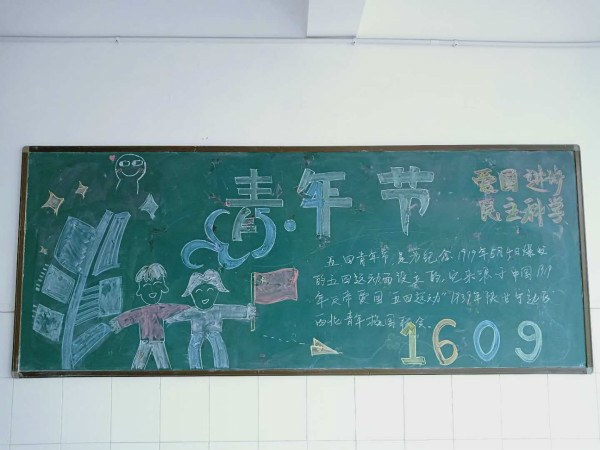 青·年节
爱国 进步
民主科学
五四青年节是为纪念1919年5月4日爆发
的五四运动而设立的,它来源于中国1919
年反帝爱国"五四运动"1939年陕甘宁边区
西北青年救国联合会.
1609